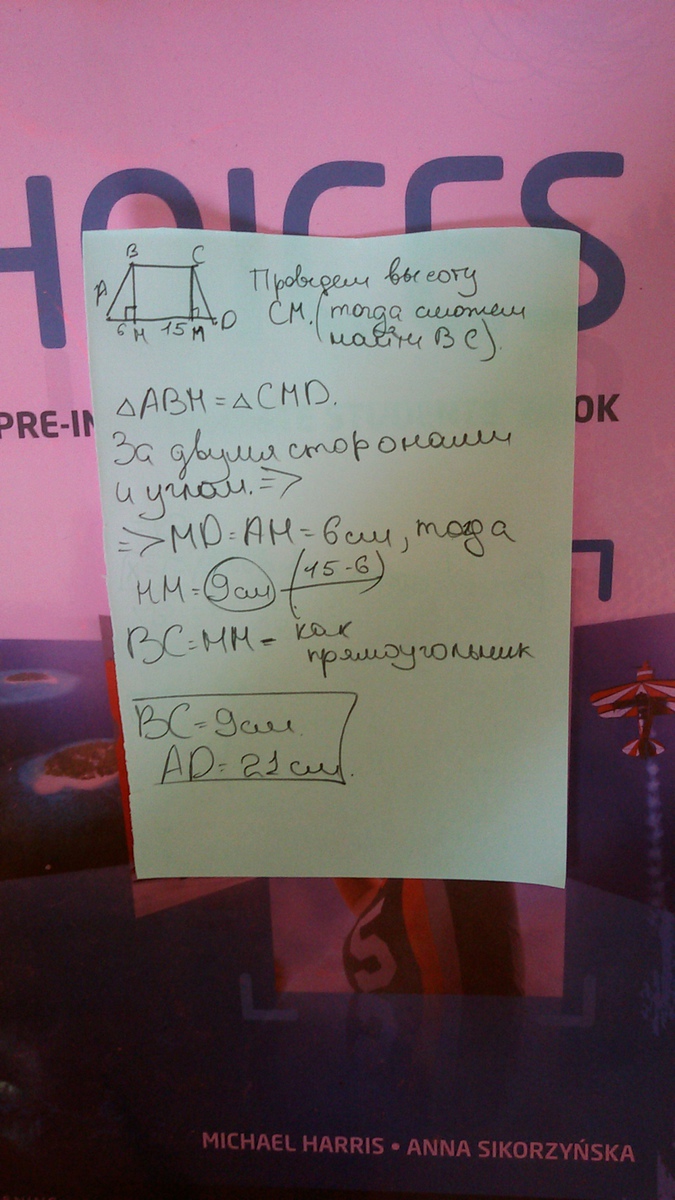 HOICES
PRE-IN
OK
B C
A
6 H 15 M D
Проведем высоту
СМ. (тогда сможем
найти ВС).
△ABH = △CMD.
За двумя сторонами
и углом. =>
=> MD = AH = 6 см, тогда
HM = 9 см (15-6)
BC = HM - как
прямоугольник
BC = 9 см
AD = 21 см.
5
MICHAEL HARRIS • ANNA SIKORZYŃSKA